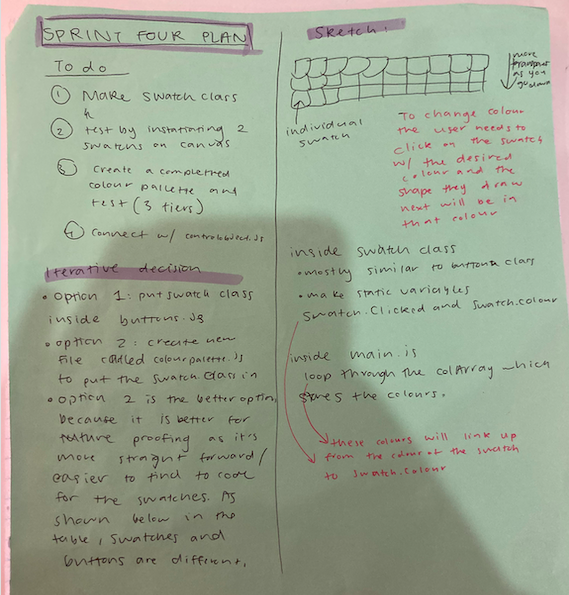 SPRINT FOUR PLAN
To do
1 Make swatch class
2 test by instantiating 2
swatches on canvas
3 Create a completed
colour pallette and
test (3 tiers)
4 Connect w/ controlobject.js
Iterative decision
• option 1: put swatch class
inside buttons.js
• option 2: create new
file called colourpalette.js
to put the swatch class in
• option 2 is the better option
because it is better for
future proofing as it's
more straight forward/
easier to find to code
for the swatches. As
shown below in the
table, swatches and
buttons are different.
Sketch:
more
transparent
as you
go down
individual
swatch
To change colour
the user needs to
click on the swatch
w/ the desired
colour and the
shape they draw
next will be in
that colour
inside swatch class
• mostly similar to button class
• make static variables
Swatch.Clicked and Swatch.colour
inside main.js
loop through the colArray which
stores the colours.
these colours will link up
from the colour of the swatch
to Swatch.Colour